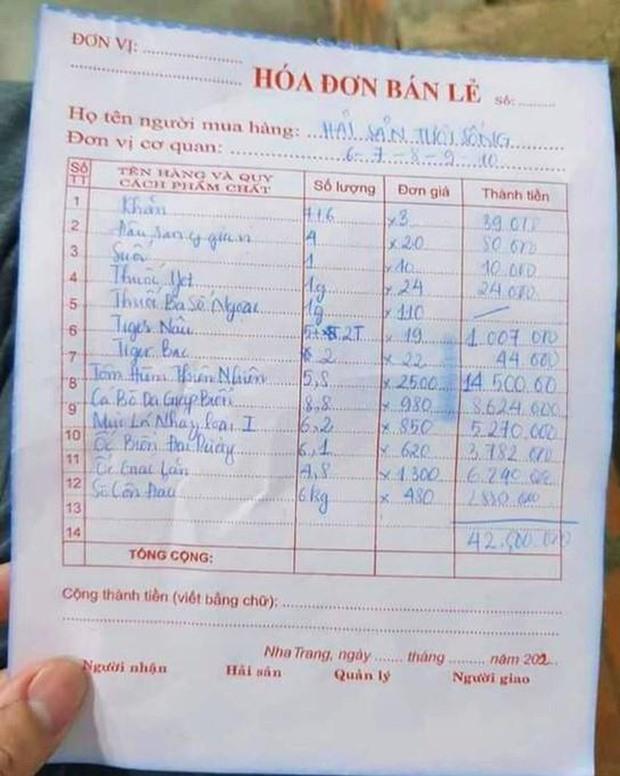 ĐƠN VỊ: ....................
....................
HÓA ĐƠN BÁN LẺ Số: ........
Họ tên người mua hàng: HẢI SẢN TƯƠI SỐNG
Đơn vị cơ quan: 6-7-8-9-10
Số TT TÊN HÀNG VÀ QUY CÁCH PHẨM CHẤT Số lượng Đơn giá Thành tiền
1 Khăn x3 39 000
2 Đậu x20 80 000
3 Suối 1 x10 10 000
4 Thuốc 1g x24 24 000
5 Thuốc Ba Số Ngoại 1g x110
6 Tiger Nâu x19 1 007 000
7 Tiger Bạc 2 x22 44 000
8 Tôm Hùm Thiên Nhiên 5,8 x2500 14 500.00
9 Cá Bò Da Giáp Biển 8,8 x980 8.624.000
10 Mực Lá Nháy loại I 6,2 x850 5.270.000
11 Ốc Biển 6,1 x620 3.782 000
12 Ốc 4,8 x1.300 6.240 000
13 Sò Côn Đảo 6kg x480 2880.000
14 42.500.000
TỔNG CỘNG:
Cộng thành tiền (viết bằng chữ): ....................
....................
Nha Trang, ngày ....... tháng ......... năm 202...
Người nhận Hải sản Quản lý Người giao